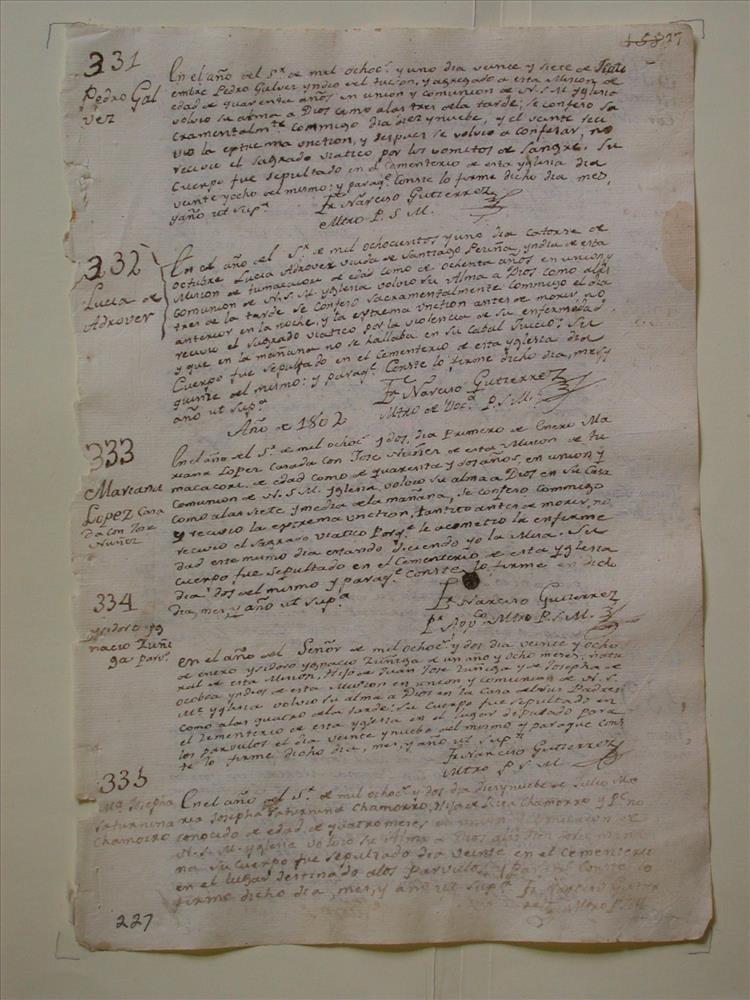 331
Pedro Gal
vez
En el año del Sr. de mil ochoc.s y uno dia veinte y siete de
embre Pedro Galvez yndio del tucson, y agregado a esta Mision, de
edad de quarenta años en union y comunion de N. S. M. Yglesia
volvio su alma a Dios como alas tres dela tarde; se confeso Sa
cramentalm.te commigo dia diez y nuebe, y el veinte reci
vio la extrema unction, y despues se volvio a confesar, no
recivio el sagrado viatico por los vomitos de sangre. Su
Cuerpo fue sepultado en el Cementerio de esta yglesia dia
veinte y ocho del mismo: y paraq.e Conste lo firme dicho dia mes,
y año ut Sup.a
Fr. Narciso Gutierrez
Mtro P. S. M.
332
Lucia de
Adrover
En el año del Sr. de mil ochocientos y uno dia catorze de
octubre Lucia Adrover viuda de Santiago Peruña, yndia de esta
Mision de tumacacori de edad como de ochenta años en union y
Comunion de N. S. M. yglesia volvio su Alma a Dios como alas
tres de la tarde se Confeso Sacramentalmente Commigo el dia
anterior en la noche, y la extrema unction antes de morir, no
recivio el sagrado viatico por la violencia de su enfermedad,
y que en la mañana no se hallaba en su Cabal Juicio: Su
Cuerpo fue sepultado en el Cementerio de esta yglesia dia
quinze del mismo: y paraq.e Conste lo firme dicho dia, mes, y
año ut Sup.a
Fr. Narciso Gutierrez
Mtro de P. S. M.
Año de 1802
333
Mariana
Lopez Casa
da con Jose
Nuñez
En el año del Sr. de mil ochoc.s y dos, dia Primero de Enero Ma
riana Lopez Casada con Jose Nuñez de esta Mision de tu
macacori de edad como de quarenta y dos años, en union y
Comunion de N. S. M. Yglesia, volvio su alma a Dios en su Casa
como alas siete y media de la mañana, se confeso Commigo
y recivio la extrema unction, tantito antes de morir, no
recivio el Sagrado Viatico Porq.e le acometio la enferme
dad este mismo dia estando diciendo yo la Misa. Su
cuerpo fue sepultado en el Cementerio de esta Yglesia
dia dos del mismo y paraq.e Conste lo firme en dicho
dia, mes, y año ut Sup.a
Fr. Narciso Gutierrez
Pr. App.co Mtro P. S. M.
334
Ysidoro Yg
nacio Zuñi
ga Parv.o
En el año del Señor de mil ochoc.s y dos dia veinte y ocho
de enero Ysidoro Ygnacio Zuñiga de un año y ocho meses, natu
ral de esta Mision, Hijo de Juan Jose Zuñiga y de Josepha de
Ocoboa yndios de esta Mision en union y comunion de N. S.
M.e yglesia volvio su alma a Dios en la Casa de sus Padres
como alas quatro de la tarde: su Cuerpo fue sepultado en
el Cementerio de esta yglesia en el lugar deputado para
los parvulos el dia veinte y nuebe del mismo y paraque Cons
te lo firme dicho dia, mes, y año ut Sup.a
Fr. Narciso Gutierrez
Mtro P. S. M.
335
Ma. Josepha
Saturnina
Chamorro
En el año del Sr. de mil ochoc.s y dos dia diez y nuebe de Julio Ma
ria Josepha Saturnina Chamorro, Hija de Chamorro y P.e no
conocido de edad de quatro meses en union y Comunion de
N. S. M. Yglesia volvio su Alma a Dios alas
na su Cuerpo fue sepultado dia veinte en el Cementerio
en el lugar destinado alos Parvulos y paraq.e Conste lo
firme dicho dia, mes, y año ut Sup.a Fr. Narciso Gutier
rez Mtro P. S. M.
227